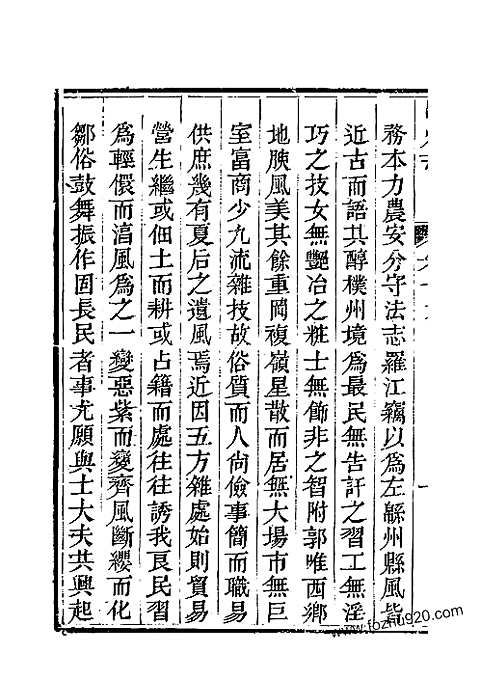 務本力農安分守法志羅江竊以爲左緜州縣風皆
近古而語其醇樸州境爲最民無告訐之習工無淫
巧之技女無艷冶之粧士無飾非之智附郭唯西鄉
地腴風美其餘重岡複嶺星散而居無大塲市無巨
室富商少九流雜技故俗質而人尙儉事簡而職易
供庶幾有夏后之遺風焉近因五方雜處始則貿易
營生繼或佃土而耕或占籍而處往往誘我良民習
爲輕儇而澆風爲之一變惡紫而變齊風斷纓而化
鄒俗鼓舞振作固長民者事尤願與士大夫共興起
www.fozhu920.com